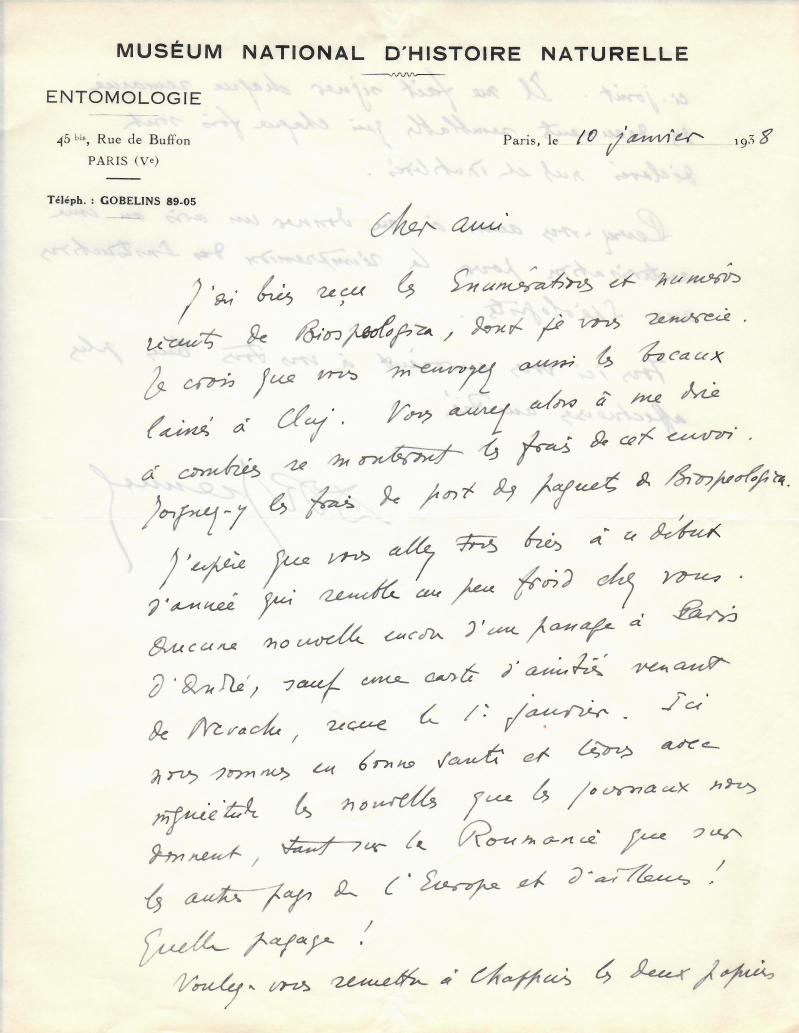 MUSÉUM NATIONAL D'HISTOIRE NATURELLE
ENTOMOLOGIE
45 bis, Rue de Buffon
PARIS (Ve)
Téléph. : GOBELINS 89-05
Paris, le 10 janvier 1938
Cher ami
J'ai bien reçu les Enumérations et numéros
récents de Biospeologica, dont je vous remercie.
Je crois que vous m'envoyez aussi les bocaux
laissés à Cluj. Vous aurez alors à me dire
à combien se monteront les frais de cet envoi.
Joignez-y les frais de port des paquets de Biospeologica.
J'espère que vous allez tous bien à ce début
d'année qui semble un peu froid chez vous.
Aucune nouvelle encore d'un passage à Paris
d'André, sauf une carte d'amitiés venant
de Nevache, reçue le 1r janvier. Ici
nous sommes en bonne santé et lisons avec
inquiétude les nouvelles que les journaux nous
donnent, tant sur la Roumanie que sur
les autres pays de l'Europe et d'ailleurs!
Quelle pagage!
Voulez-vous remettre à Chappuis les deux papiers